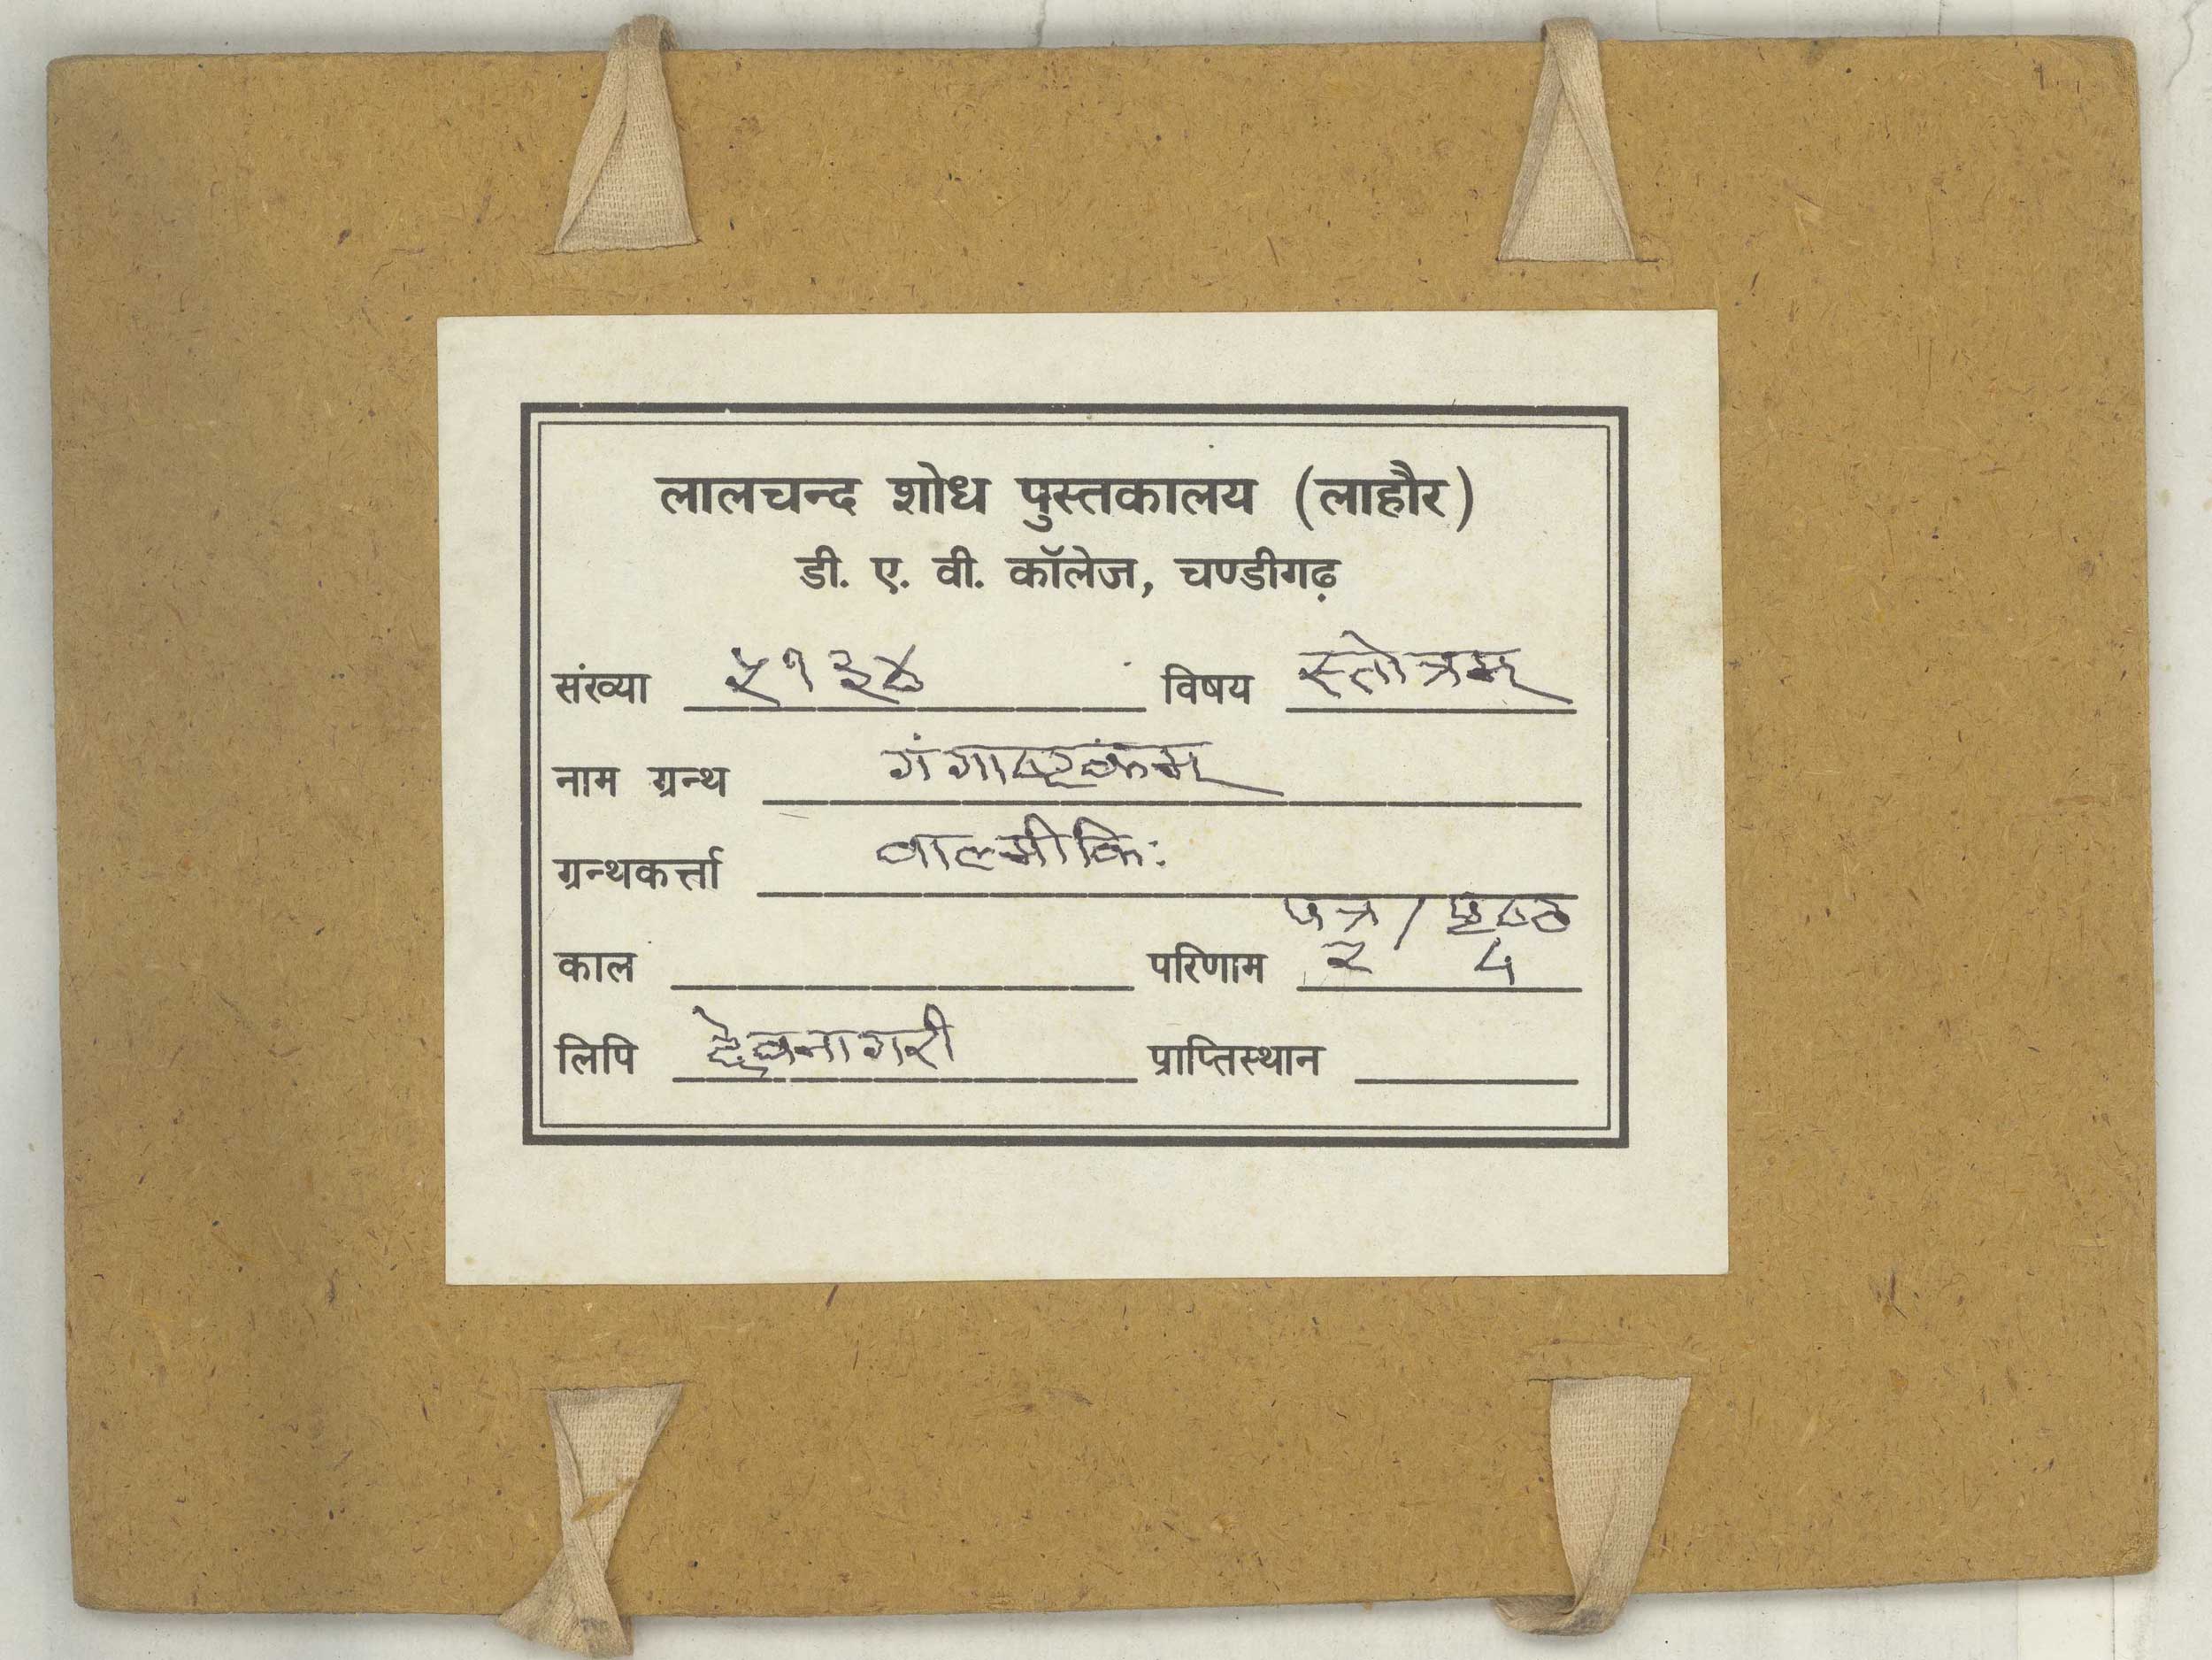 लालचन्द शोध पुस्तकालय (लाहौर)
डी. ए. वी. कॉलेज, चण्डीगढ़
संख्या ५१३४ विषय स्तोत्रम्
नाम ग्रन्थ गंगाष्टकम्
ग्रन्थकर्त्ता वाल्मीकिः
पत्र / पृष्ठ
काल परिणाम २ 4
लिपि देवनागरी प्राप्तिस्थान